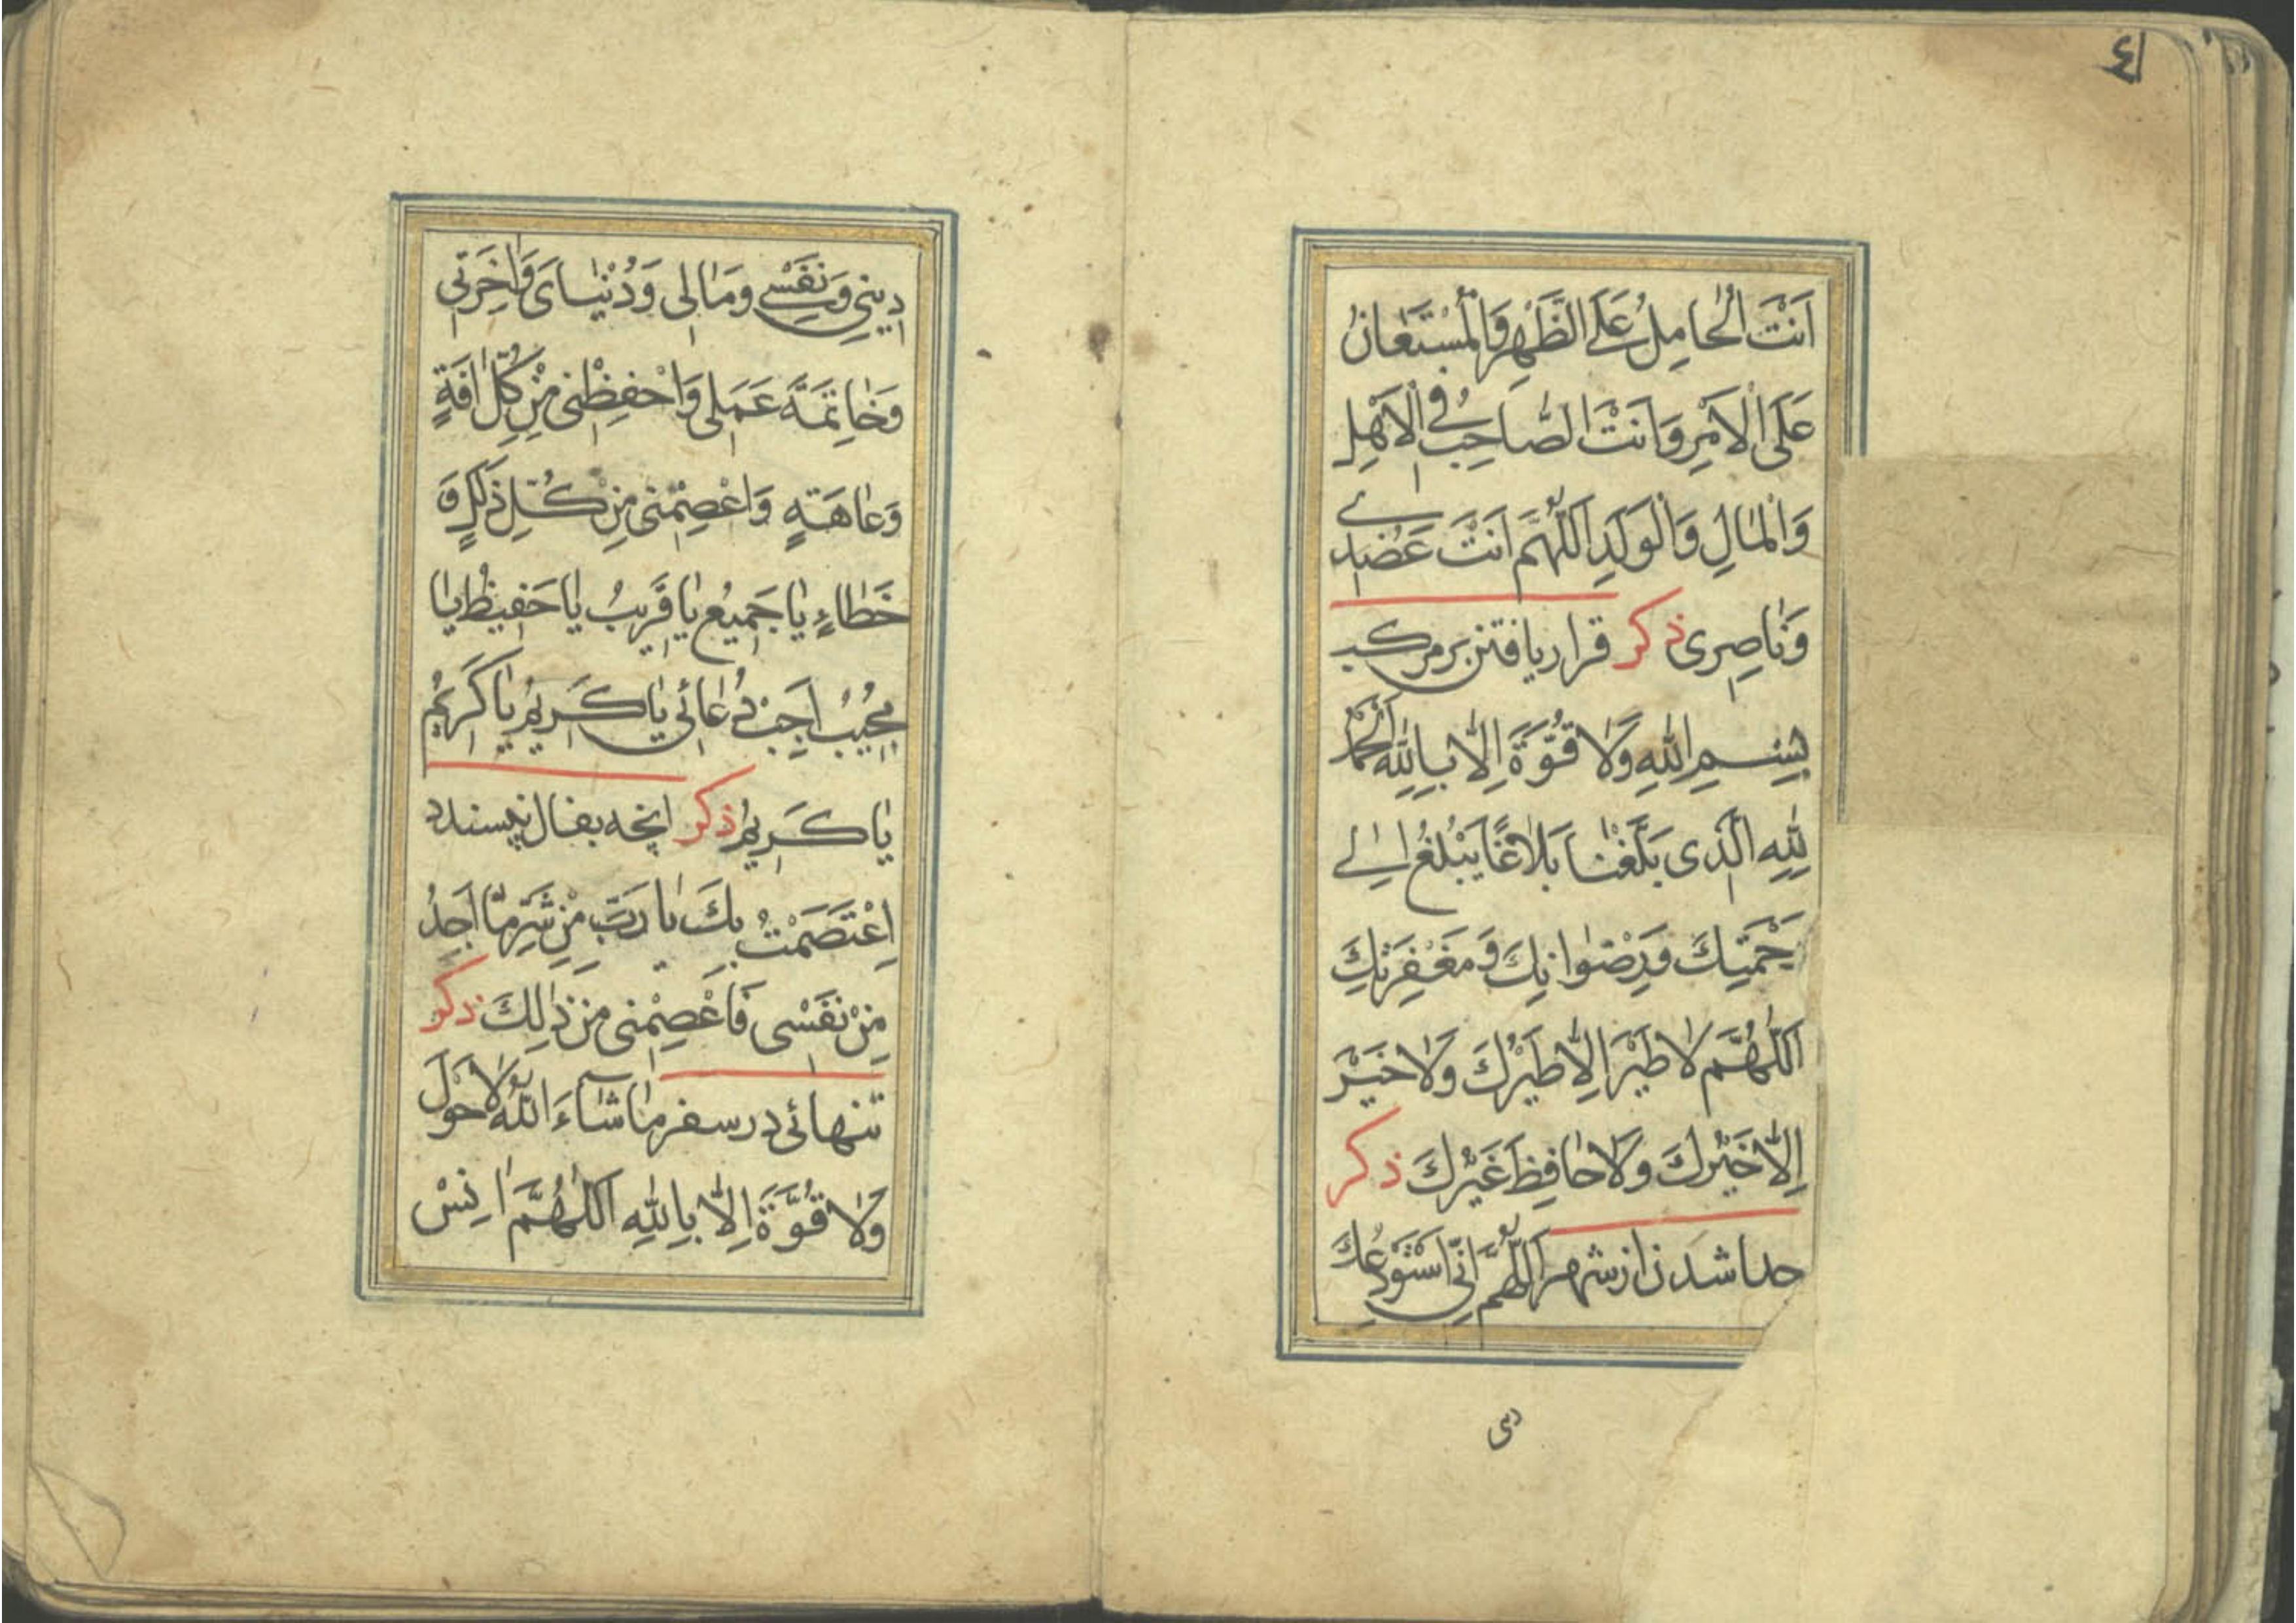 ٤١
اَنْتَ الْحَامِلُ عَلَى الظَّهْرِ وَالْمُسْتَعَانُ
عَلَى الْاَمْرِ وَاَنْتَ الصَّاحِبُ فِي الْاَهْلِ
وَالْمَالِ وَالْوَلَدِ اَللّٰهُمَّ اَنْتَ عَضُدِي
وَنَاصِرِى ذكر قرار يافتن بر مركب
بِسْمِ اللّٰهِ وَلَا قُوَّةَ اِلَّا بِاللّٰهِ اَلْحَمْدُ
لِلّٰهِ الَّذِى بَلَّغَنَا بَلَاغًا يَبْلُغُ اِلٰى
رَحْمَتِكَ وَرِضْوَانِكَ وَمَغْفِرَتِكَ
اَللّٰهُمَّ لَا طَيْرَ اِلَّا طَيْرُكَ وَلَا خَيْرَ
اِلَّا خَيْرُكَ وَلَا حَافِظَ غَيْرُكَ ذكر
جدا شدن از شهر اَللّٰهُمَّ اِنِّى اَسْتَوْدِعُكَ
دينى
دِينِى وَنَفْسِى وَمَالِى وَدُنْيَاىَ وَاٰخِرَتِى
وَخَاتِمَةَ عَمَلِى وَاحْفِظْنِى مِنْ كُلِّ اٰفَةٍ
وَعَاهَةٍ وَاعْصِمْنِى مِنْ كُلِّ ذَلَلٍ وَ
خَطَاءٍ يَا جَمِيعُ يَا قَرِيبُ يَا حَفِيظُ يَا
مُجِيبُ اَجِبْ دُعَائِى يَا كَرِيمُ يَا كَرِيمُ
يَا كَرِيمُ ذكر انچه بفال نپسندد
اِعْتَصَمْتُ بِكَ يَا رَبِّ مِنْ شَرِّ مَا اَجِدُ
مِنْ نَفْسِى فَاعْصِمْنِى مِنْ ذٰلِكَ ذكر
تنهائى در سفر مَا شَاءَ اللّٰهُ لَا حَوْلَ
وَلَا قُوَّةَ اِلَّا بِاللّٰهِ اَللّٰهُمَّ اٰنِسْ